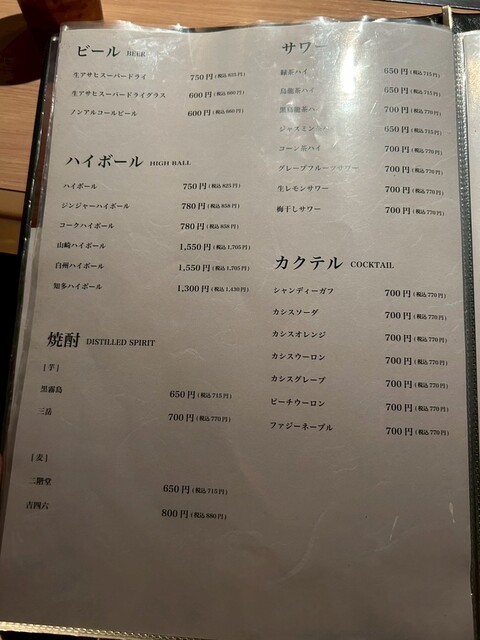 ビール BEER
生アサヒスーパードライ 750円(税込825円)
生アサヒスーパードライグラス 600円(税込660円)
ノンアルコールビール 600円(税込660円)
ハイボール HIGH BALL
ハイボール 750円(税込825円)
ジンジャーハイボール 780円(税込858円)
コークハイボール 780円(税込858円)
山崎ハイボール 1,550円(税込1,705円)
白州ハイボール 1,550円(税込1,705円)
知多ハイボール 1,300円(税込1,430円)
焼酎 DISTILLED SPIRIT
[芋]
黒霧島 650円(税込715円)
三岳 700円(税込770円)
[麦]
二階堂 650円(税込715円)
吉四六 800円(税込880円)
サワー
緑茶ハイ 650円(税込715円)
烏龍茶ハイ 650円(税込715円)
黒烏龍茶ハイ 700円(税込770円)
ジャスミン茶ハイ 650円(税込715円)
コーン茶ハイ 700円(税込770円)
グレープフルーツサワー 700円(税込770円)
生レモンサワー 700円(税込770円)
梅干しサワー 700円(税込770円)
カクテル COCKTAIL
シャンディーガフ 700円(税込770円)
カシスソーダ 700円(税込770円)
カシスオレンジ 700円(税込770円)
カシスウーロン 700円(税込770円)
カシスグレープ 700円(税込770円)
ピーチウーロン 700円(税込770円)
ファジーネーブル 700円(税込770円)